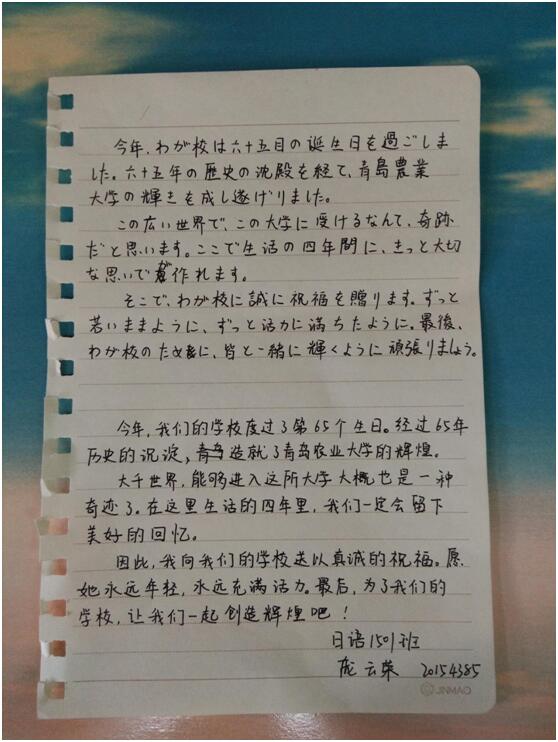 今年、わが校は六十五目の誕生日を過ごしま
した。六十五年の歴史の沈殿を経て、青島農業
大学の輝きを成し遂げりました。
この広い世界で、この大学に受けるなんて、奇跡
だと思います。ここで生活の四年間に、きっと大切
な思いでが作れます。
そこで、わが校に誠に祝福を贈ります。ずっと
若いままように、ずっと活力に満ちたように。最後、
わが校のために、皆と一緒に輝くように頑張りましょう。
今年,我们的学校度过了第65个生日。经过65年
历史的沉淀,青岛造就了青岛农业大学的辉煌。
大千世界,能够进入这所大学大概也是一种
奇迹了。在这里生活的四年里,我们一定会留下
美好的回忆。
因此,我向我们的学校送以真诚的祝福。愿
她永远年轻,永远充满活力。最后,为了我们的
学校,让我们一起创造辉煌吧!
日语1501班
庞云荣 20154385
JINMAO